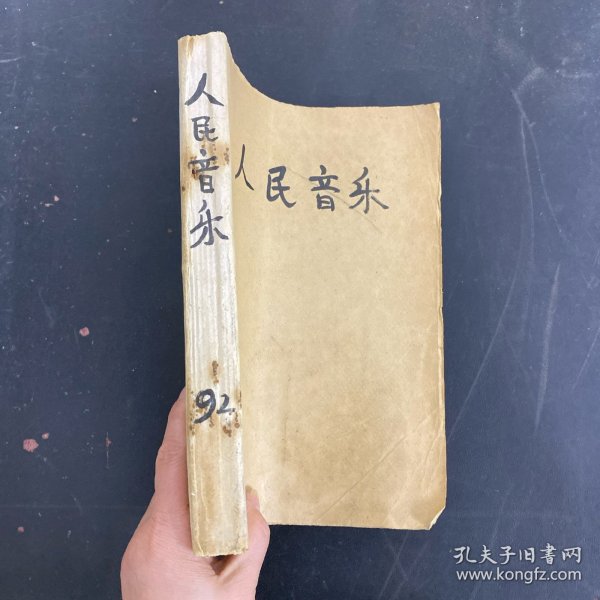 人民音乐
92
人民音乐
孔夫子旧书网
www.kongfz.com